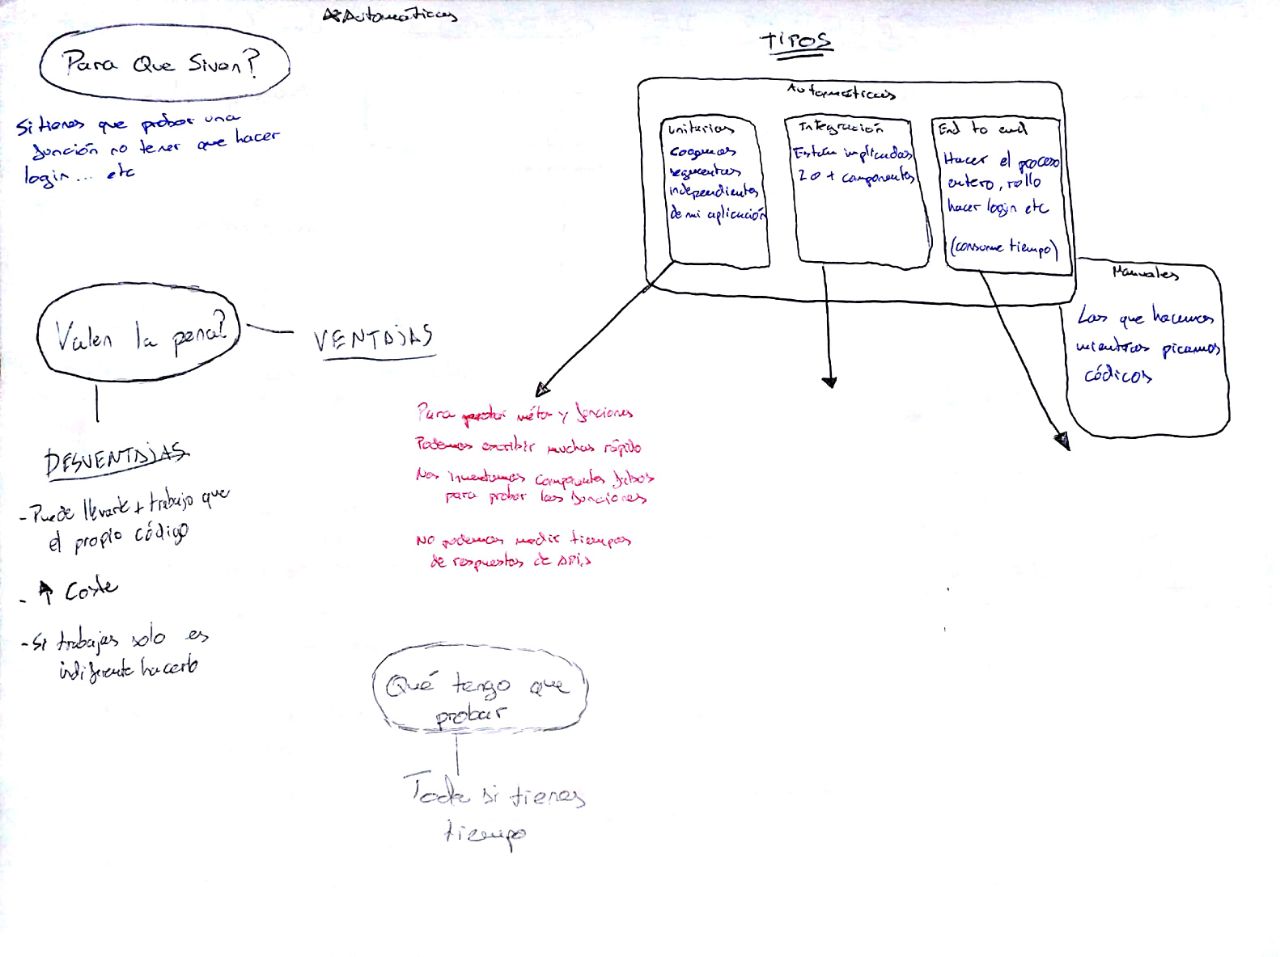 Automáticas
Para Que Siven?
Si tienes que probar una
función no tener que hacer
login... etc
TIPOS
Automáticas
Unitarias
Coegmos
segmentos
independientes
de mi aplicación
Integración
Están implicadas
2 o + componentes
End to end
Hacer el proceso
entero, rollo
hacer login etc
(consume tiempo)
Manuales
Las que hacemos
mientras picamos
códicos
Valen la pena?
VENTAJAS
DESVENTAJAS
- Puede llevarte + trabajo que
el propio código
- ↑ Coste
- Si trabajas solo es
indiferente hacerlo
Para probar y funciones
Podemos escribir muchas rápido
Nos inventamos componentes falsos
para probar las funciones
No podemos medir tiempos
de respuestas de APIs
Qué tengo que
probar
Todo si tienes
tiempo